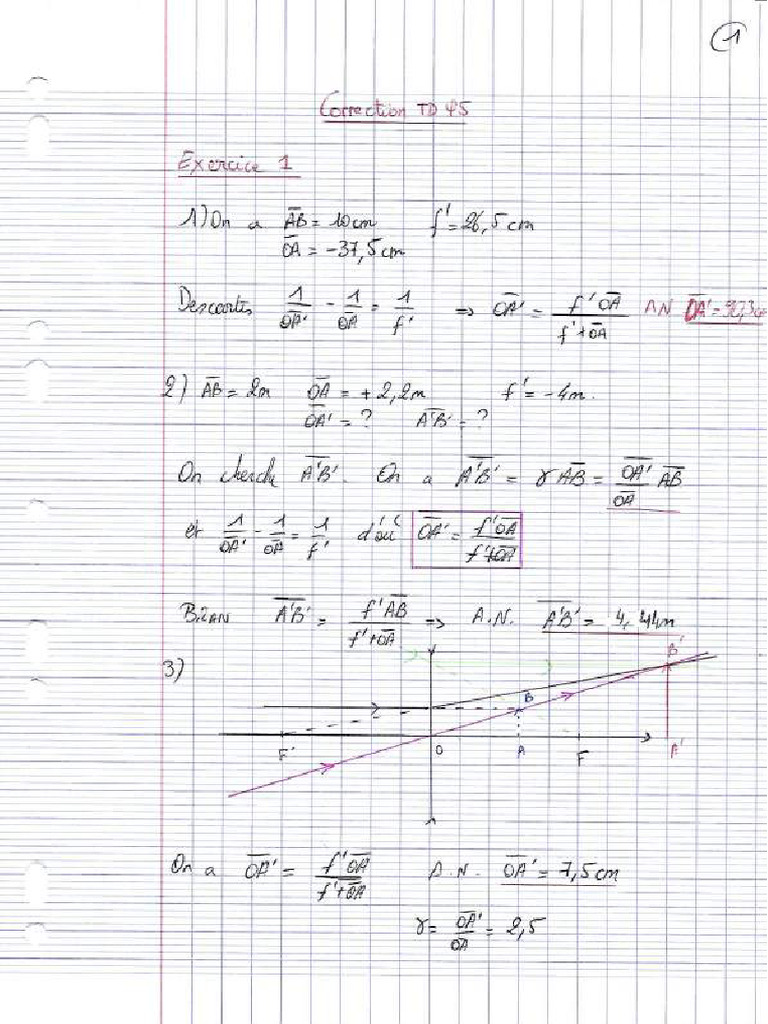 1
Correction TD 45
Exercice 1
1) On a A̅B̅ = 10cm f' = 26,5 cm
O̅A̅ = -37,5 cm
Descartes 1/O̅A̅' - 1/O̅A̅ = 1/f' => O̅A̅' = f'O̅A̅/(f'+O̅A̅) AN O̅A̅'=
2) A̅B̅ = 2m O̅A̅ = +2,2m f' = -4m.
O̅A̅' = ? A̅'B̅' = ?
On cherche A̅'B̅'. On a A̅'B̅' = γ A̅B̅ = O̅A̅'/O̅A̅ A̅B̅
et 1/O̅A̅' - 1/O̅A̅ = 1/f' d'où O̅A̅' = f'O̅A̅/(f'+O̅A̅)
Bilan A̅'B̅' = f'A̅B̅/(f'+O̅A̅) => A.N. A̅'B̅' = 4,44m
3)
B'
B
F' O A F A'
On a O̅A̅' = f'O̅A̅/(f'+O̅A̅) A.N. O̅A̅' = 7,5cm
γ = O̅A̅'/O̅A̅ = 2,5